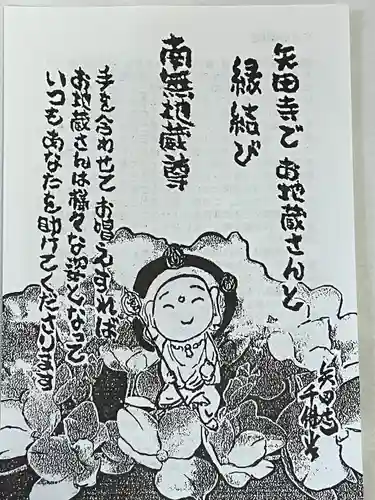 矢田寺で お地蔵さんと
縁結び
南無地蔵尊
手を合わせて お唱えすれば
お地蔵さんは様々な姿となって
いつもあなたを助けてくださいます
矢田寺